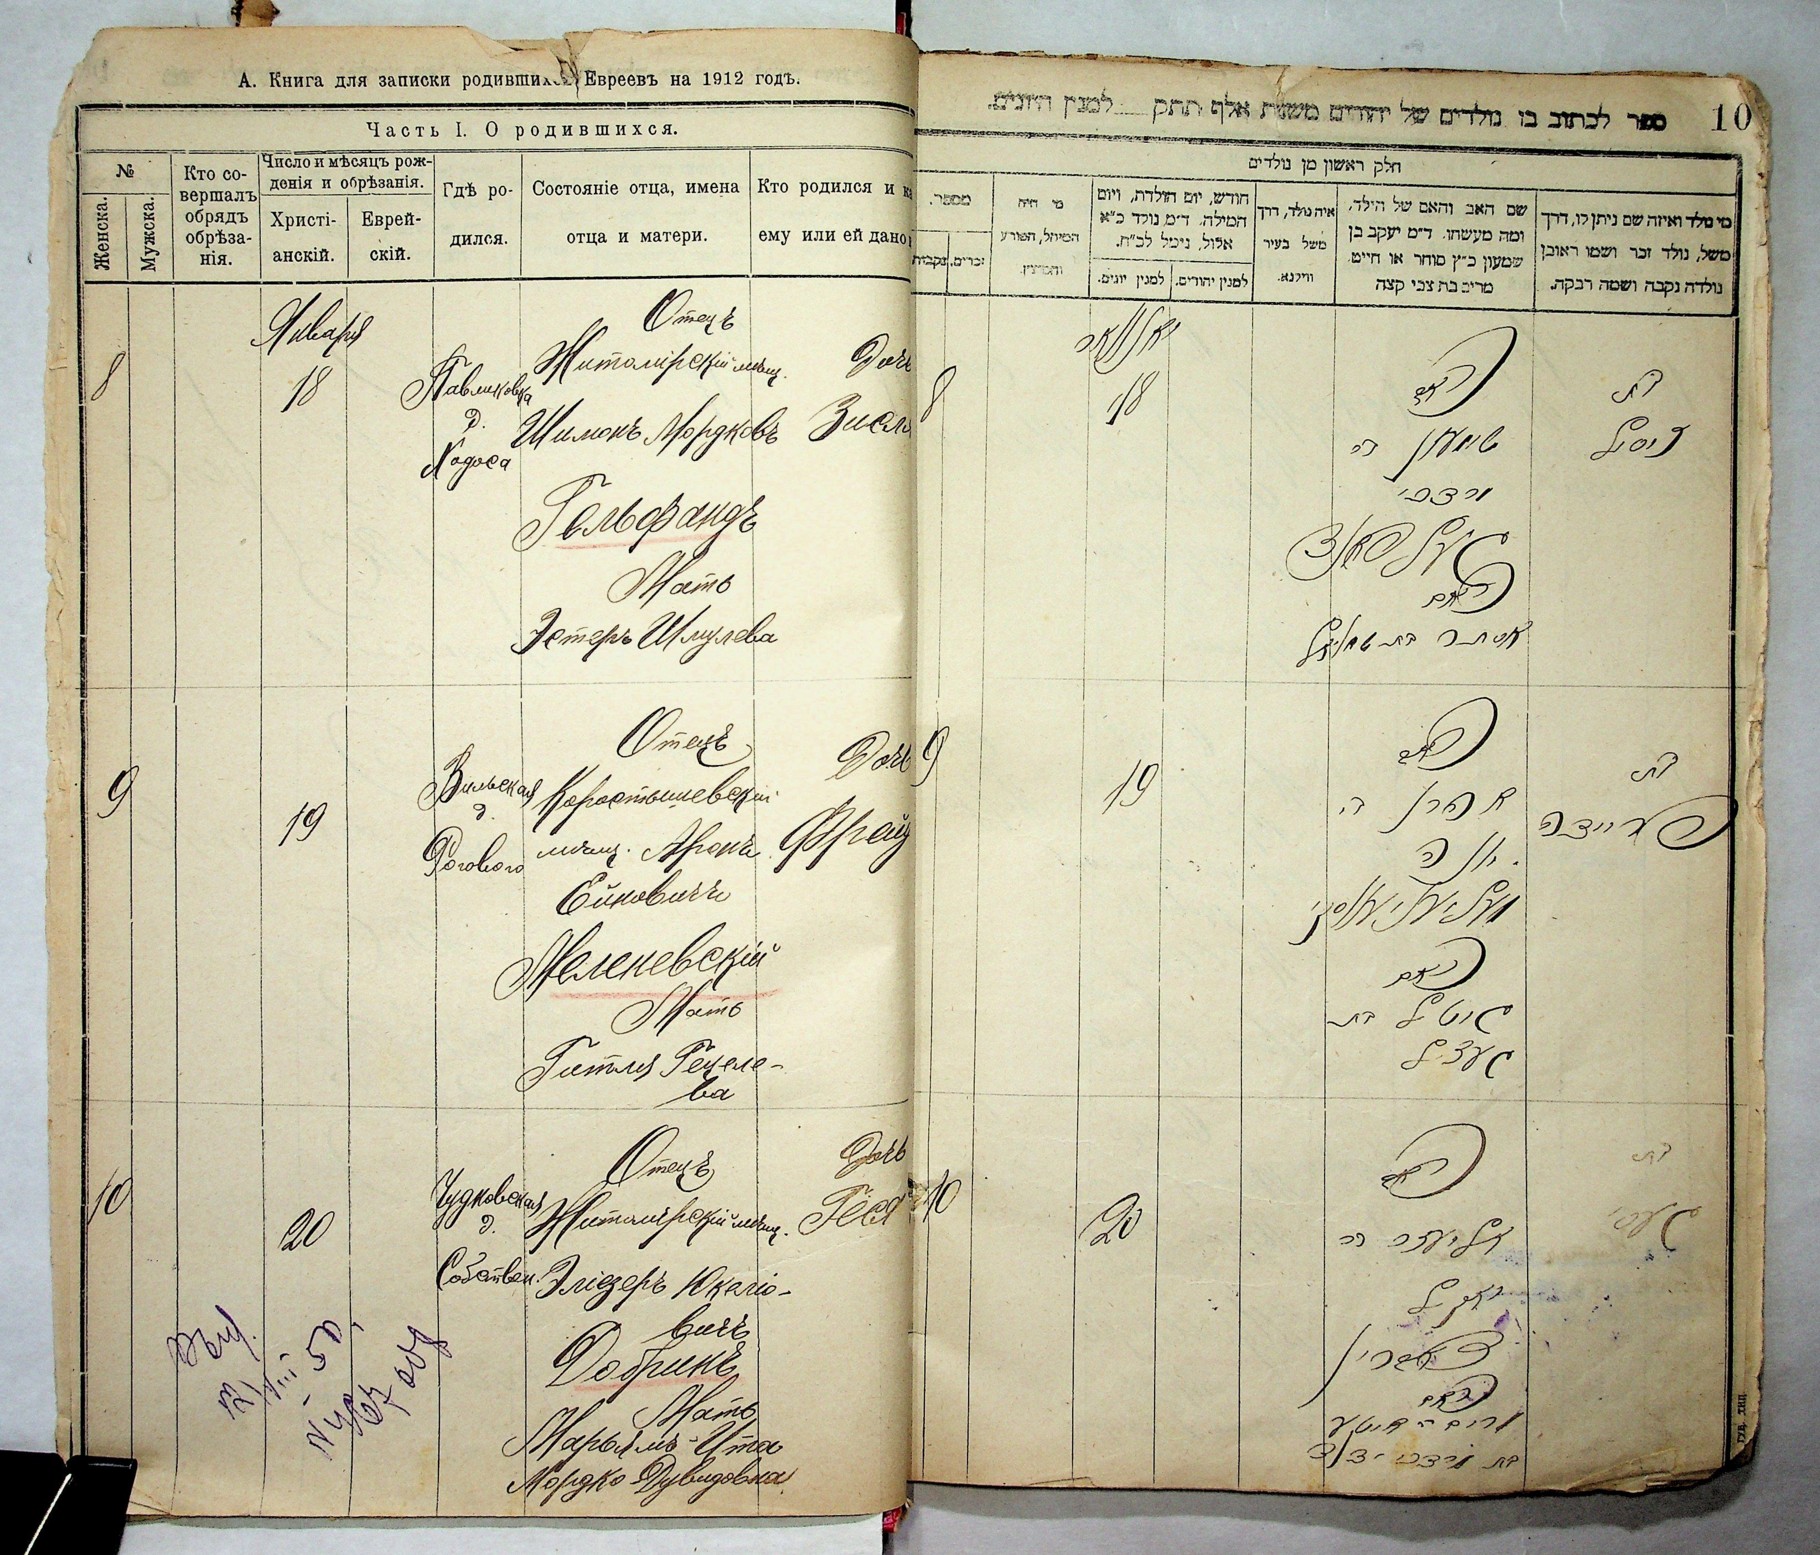 А. Книга для записки родившихся Евреевъ на 1912 годъ.
Часть I. О родившихся.
№
Женска.
Мужска.
Кто со-
вершалъ
обрядъ
обрѣза-
нія.
Число и мѣсяцъ рож-
денія и обрѣзанія.
Христі-
анскій.
Еврей-
скій.
Гдѣ ро-
дился.
Состояніе отца, имена
отца и матери.
Кто родился и ка
ему или ей дано
Января
8
18
Павликовка
д.
Ходоса
Отецъ
Житомірскій мѣщ.
Шимонъ Мордковъ
Гельфандъ
Мать
Эстеръ Шмулева
Дочь
Зисля
9
19
Вильская
д.
Рогового
Отецъ
Коростышевскій
мѣщ. Аронъ
Ейновичъ
Меленевскій
Мать
Гитля Гецеле-
ва
Дочь
Фрейд
10
20
Чудновская
д.
Собствен.
Отецъ
Житомірскій мѣщ.
Эліезеръ Юкеліо-
вичъ
Добринъ
Мать
Марьямъ-Ита
Мордко-Дувидовна
Дочь
Геся
10
ספר לכתוב בו נולדים של יהודים משנת אלף תתק למנין היונים.
חלק ראשון מן נולדים
מספר.
זכרים.
נקבות
מי היה
המוהל, הפורע
חודש, יום הולדת, ויום
המילה. ד״מ נולד כ״א
אלול. נימל לכ״ח.
למנין יהודים.
למנין יונים.
איה נולד, דרך
משל בעיר
ווילנא.
שם האב והאם של הילד,
ומה מעשהו. ד״מ יעקב בן
שמעון כ״ץ סוחר או חייט.
מרים בת צבי קצה
מי נולד ואיזה שם ניתן לו, דרך
משל, נולד זכר ושמו ראובן
נולדה נקבה ושמה רבקה.
יאנואר
8
18
האב
שמעון בר
מרדכי
געלפאנד
האם
אסתר בת שמואל
בת
זיסיל
9
19
האב
אהרן בר
יונה
מעליניעווסקי
האם
גיטל בת
געציל
בת
פריידה
10
20
האב
אליעזר בר
יאקיל
דאברין
האם
מרים איטע
בת
בת
געסי